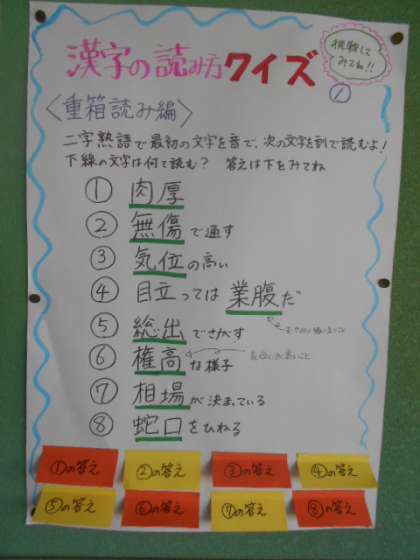 漢字の読み方クイズ
挑戦してみてね!!
①
〈重箱読み編〉
二字熟語で最初の文字を音で、次の文字を訓で読むよ!
下線の文字は何て読む? 答えは下をみてね
① 肉厚
② 無傷で通す
③ 気位の高い
④ 目立っては業腹だ
⑤ 総出でさがす
⑥ 権高な様子
⑦ 相場が決まっている
⑧ 蛇口をひねる
①の答え ②の答え ③の答え ④の答え
⑤の答え ⑥の答え ⑦の答え ⑧の答え